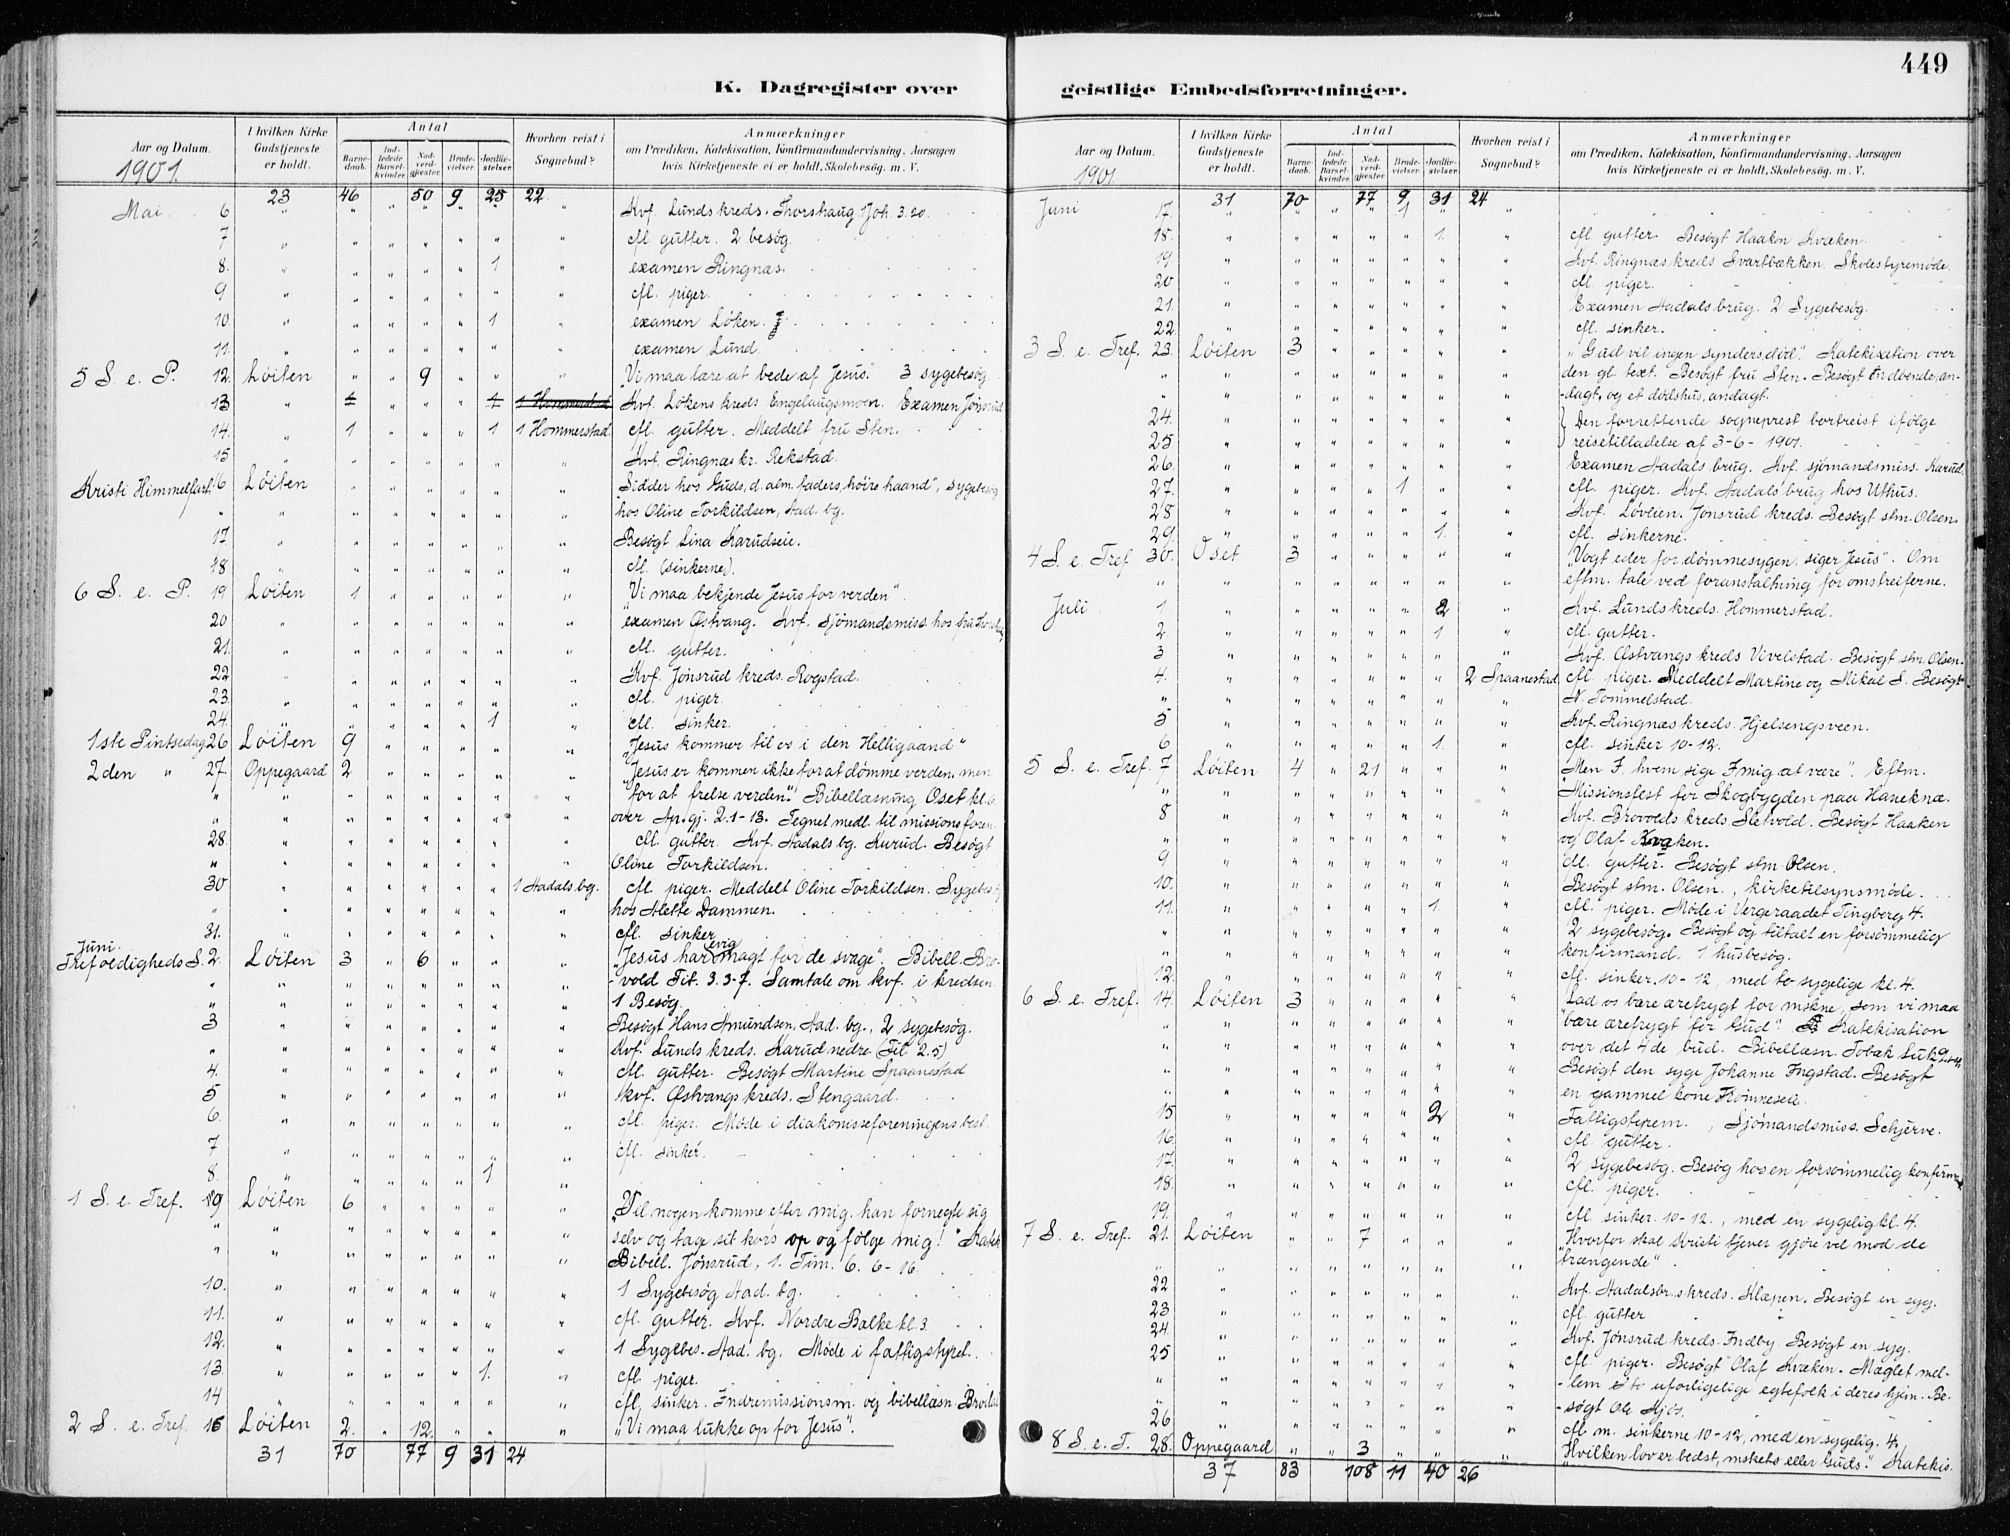 449
K. Dagregister over geistlige Embedsforretninger.
Aar og Datum.
1901.
I hvilken Kirke Gudstjeneste er holdt.
Antal
Barne-daab.
Ind-ledede Barsel-kvinder.
Nad-verd-gjester.
Brude-vielser.
Jordfæ-stelser.
Hvorhen reist i Sognebud?
Anmærkninger
om Prædiken, Katekisation, Konfirmandundervisning, Aarsagen
hvis Kirketjeneste ei er holdt, Skolebesøg. m. V.
23 46 50 9 25 22
Mai 6 Kvf. Lunds kreds. Thorshaug Joh. 3.20.
7 cfl. gutter. 2 besøg.
8. 1 examen Ringnæs.
9 cfl. piger.
10 1 examen Løken.
11. examen Lund.
5 S. e. P. 12. Løiten 9 "Vi maa lære at bede af Jesus." 3 sygebesøg.
13 1 1 1 Hommerstad Kvf. Løkens kreds Engelaugsmoen. Examen Jønsrud
14. 1 1 1 Hommerstad cfl. gutter. Meddelt fru Sten.
15 Kvf. Ringnæs kr. Rekstad.
Kristi Himmelfart. 16 Løiten "Sidder hos Guds, d. alm. faders, høire haand", sygebesøg
hos Oline Torkildsen, Aad. bg.
17. Besøgt Lina Karudseie.
18 cfl. (sinkerne).
6 S. e. P. 19 Løiten 1 "Vi maa bekjende Jesus for verden".
20 examen Østvang. Kvf. sjømandsmiss. hos fru
21. cfl. gutter.
22 Kvf. Jønsrud kreds. Rogstad.
23. cfl. piger.
24. 1 cfl. sinker.
1ste Pintsedag 26 Løiten 9 "Jesus kommer til os i den Helligaand"
2den " 27. Oppegaard 2 "Jesus er kommen ikke for at dømme verden, men
for at frelse verden." Bibellæsning Oset kl. 6
over Ap.gj. 2.1-13. Tegnet medl. til missionsforen.
28. cfl. gutter. Kvf. Aadals bg. Kurud. Besøgt
Oline Torkildsen.
30 1 Aadals bg. cfl. piger. Meddelt Oline Torkildsen. Sygebesøg
hos Mette Dammen.
31. cfl. sinker
Juni.
Trefoldigheds S. 2. Løiten 3 6 "Jesus har evig magt for de svage". Bibell. Bro-
vold Tit. 3.3-7. Samtale om kvf. i kredsen.
1 Besøg.
3 Besøgt Hans Amundsen, Aad. bg., 2 sygebesøg.
Kvf. Lunds kreds. Karud nedre (Fil 2.5)
4. cfl. gutter. Besøgt Martine Spaanestad
5 Kvf. Østvangs kreds. Stengaard.
6. cfl. piger. Møde i diakonisseforeningens best.
7 cfl. sinker.
8. 1
1 S. e. Tref. 9 Løiten 6 "Vil nogen komme efter mig, han fornegte sig
selv og tage sit kors op og følge mig!" Katek
Bibell. Jønsrud, 1. Tim. 6. 6-16.
10. 1 Sygebesøg Aad. bg.
11. cfl. gutter. Kvf. Nordre Balke kl. 3.
12. 1 Sygebes. Aad. bg. Møde i fattigstyret.
13. 1. cfl. piger.
14 cfl. sinker. Indremissionsm. og bibellæsn.
2 S. e. Tref. 16 Løiten 2. 12. "Vi maa lukke op for Jesus".
31 70 77 9 31 24
Aar og Datum.
1901
I hvilken Kirke Gudstjeneste er holdt.
Antal
Barne-daab.
Ind-ledede Barsel-kvinder.
Nad-verd-gjester.
Brude-vielser.
Jordfæ-stelser.
Hvorhen reist i Sognebud?
Anmærkninger
om Prædiken, Katekisation, Konfirmandundervisning, Aarsagen
hvis Kirketjeneste ei er holdt, Skolebesøg. m. V.
31 70 77 9 31 24
Juni 17. 1
18. 1. cfl. gutter. Besøgt Haaken Kvæken.
19. Kvf. Ringnæs kreds Svartbækken. Skolestyremøde.
20 cfl. piger.
21. Examen Aadals brug. 2 Sygebesøg.
22 cfl. sinker.
3 S. e. Tref. 23. Løiten 3 "Gud vil ingen synders død." Katekisation over
den gl. text. Besøgt fru Sten. Besøgt en døende, an-
dagt, og et dødshus, andagt.
24. Den forrettende sogneprest bortreist ifølge
25 reisetilladelse af 3-6-1901.
26. Examen Aadals brug. Kvf. sjømandsmiss. Karud.
27. 1 cfl. piger. Kvf. Aadals brug hos Uthus.
28 Kvf. Løveien. Jønsrud kreds. Besøgt stm. Olsen.
29. 1. cfl. sinkerne.
4 S. e. Tref 30. Oset 3 "Vogt eder for dømmesygen, siger Jesus". Om
eftm. tale ved foranstaltning for omstreiferne.
Juli 1 2 Kvf. Lunds kreds. Hommerstad.
2. 1. cfl. gutter.
3 Kvf. Østvangs kreds Vevelstad. Besøgt stm. Olsen.
4. 2 Spaanestad cfl. piger. Meddelt Martine og Mikal S. Besøgt
N. Tommelstad.
5 Kvf. Ringnæs kreds. Hjelsengsveen.
6 1. cfl. sinker 10-12.
5 S. e. Tref. 7 Løiten 4 21 "Men I, hvem sige I mig at være". Eftm.
Missionsfest for Skogbygden paa Haneknæ.
8 Kvf. Brovolds kreds Sletvold. Besøgt Haaken
og Olaf Kvæken.
9 cfl. gutter. Besøgt stm. Olsen.
10. Besøgt stm. Olsen., kirketilsynsmøde.
11. 1. cfl. piger. Møde i Vergeraadet Tingberg 4.
2 sygebesøg. Besøgt og tiltalt en forsømmelig
konfirmand. 1 husbesøg.
12. cfl. sinker. 10-12, med to sygelige kl. 4.
6 S. e. Tref. 14. Løiten 3 "Lad os bære ærefrygt for mskne, som vi maa
bære ærefrygt for Gud". Katekisation
over det 4de bud. Bibellæsn. Tobæk
Besøgt den syge Johanne Ingstad. Besøgt
en gammel kone
15 2 Fattigstyrem., Sjømandsmiss. Schjerve.
16. cfl. gutter.
17. 2 sygebesøg. Besøg hos en forsømmelig konfirm.
18. cfl. piger.
19. cfl. sinker. 10-12., med en sygelig kl. 4.
7 S. e. Tref. 21. Løiten 7 "Hvorfor skal Kristi tjener gjøre vel mod de
trængende".
22 Kvf. Aadalsbr.s kreds. Klæpen. Besøgt en syg.
23 cfl. gutter
24. Kvf. Jønsrud kreds. Indby. Besøgt en syg.
25 cfl. piger. Besøgt Olaf Kvæken. Mæglet mel-
lem et to uforligelige egtefolk i deres hjem. Be-
søgt Ole Hjøs.
26. cfl. m. sinkerne 10-12, med en sygelig. 4.
8 S. e. T. 28. Oppegaard 3 "Hvilken lov er bedst, mskets eller Guds." Katekis.
37 83 108 11 40 26